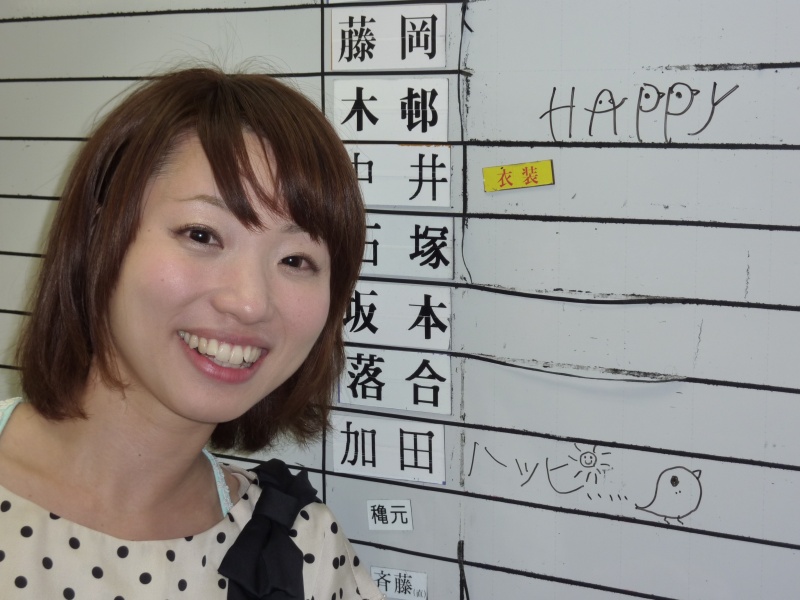 藤岡
木邨 HAPPY
中井 衣装
石塚
坂本
落合
加田 ハッピ.....
穐元
斉藤(直)